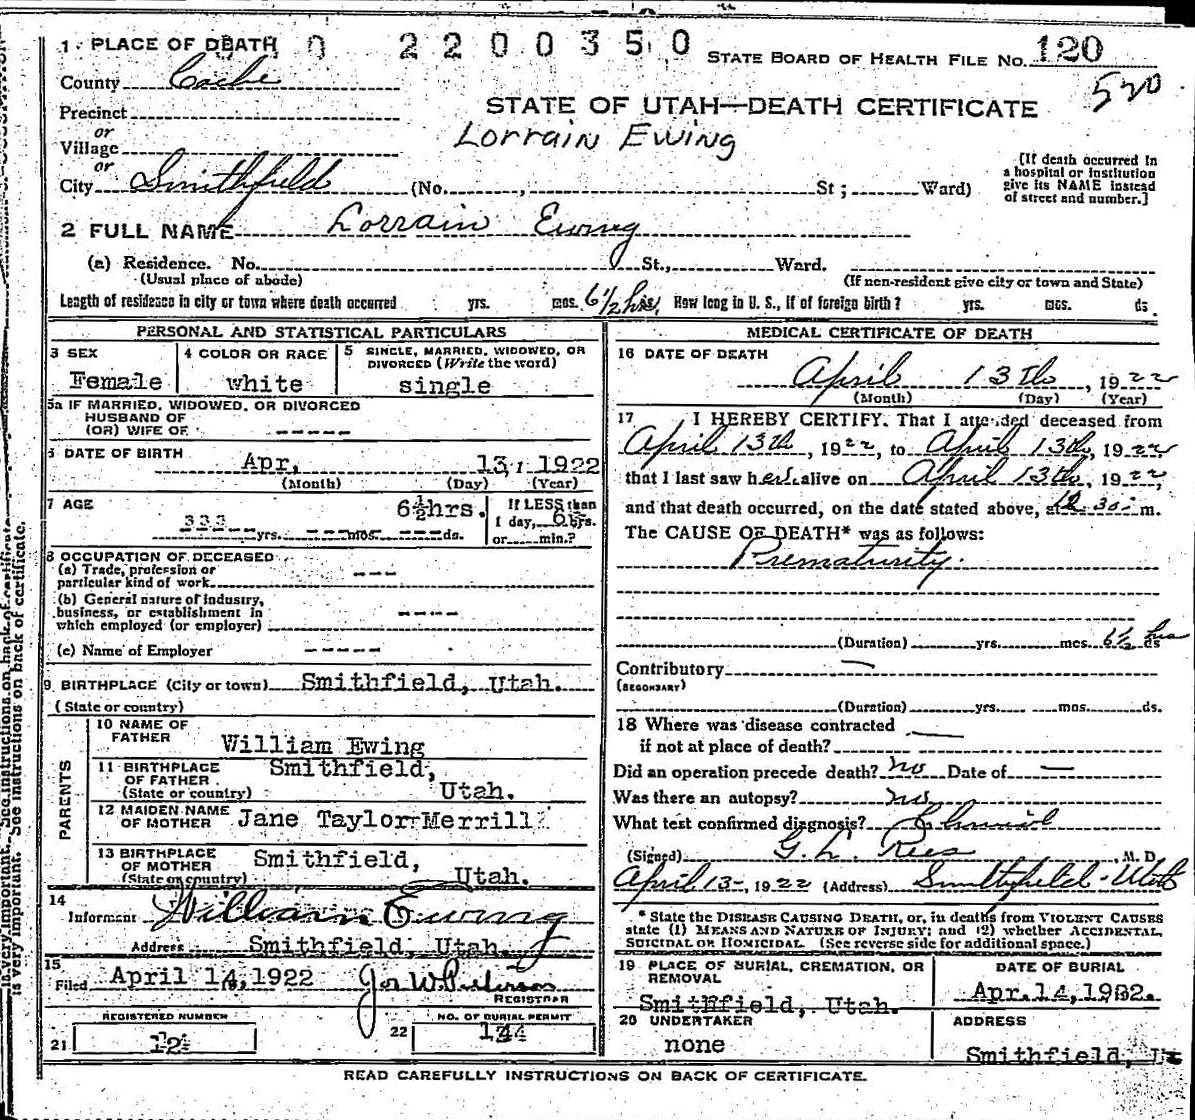 1 PLACE OF DEATH 2200350 STATE BOARD OF HEALTH FILE No. 120
County Cache 520
STATE OF UTAH—DEATH CERTIFICATE
Precinct
or
Lorrain Ewing
Village
or
City Smithfield (No. , St; Ward)
[If death occurred in
a hospital or institution
give its NAME instead
of street and number.]
2 FULL NAME Lorrain Ewing
(a) Residence. No. St., Ward.
(Usual place of abode) (If non-resident give city or town and State)
Length of residence in city or town where death occurred yrs. mos. 6½ hrs. How long in U. S., if of foreign birth? yrs. mos. ds.
PERSONAL AND STATISTICAL PARTICULARS
3 SEX 4 COLOR OR RACE 5 SINGLE, MARRIED, WIDOWED, OR
DIVORCED (Write the word)
Female white single
5a IF MARRIED, WIDOWED, OR DIVORCED
HUSBAND OF
(OR) WIFE OF -----
6 DATE OF BIRTH Apr. 13, 1922
(Month) (Day) (Year)
7 AGE 6½hrs. If LESS than
--- yrs. --- mos. --- ds. 1 day, 6½hrs.
or min.?
8 OCCUPATION OF DECEASED
(a) Trade, profession or
particular kind of work ---
(b) General nature of industry,
business, or establishment in
which employed (or employer) ----
(c) Name of Employer -----
9 BIRTHPLACE (City or town) Smithfield, Utah.
(State or country)
PARENTS
10 NAME OF
FATHER William Ewing
11 BIRTHPLACE
OF FATHER
(State or country) Smithfield,
Utah.
12 MAIDEN NAME
OF MOTHER Jane Taylor Merrill
13 BIRTHPLACE
OF MOTHER
(State or country) Smithfield,
Utah.
14
Informant William Ewing
Address Smithfield, Utah
15
Filed April 14, 1922
REGISTRAR
REGISTERED NUMBER NO. OF BURIAL PERMIT
21 22
MEDICAL CERTIFICATE OF DEATH
16 DATE OF DEATH
April 13th, 1922
(Month) (Day) (Year)
17 I HEREBY CERTIFY. That I attended deceased from
April 13th, 1922, to April 13th, 1922,
that I last saw her alive on April 13th, 1922,
and that death occurred, on the date stated above, at 12.30 m.
The CAUSE OF DEATH* was as follows:
Prematurity.
(Duration) yrs. mos. 6½ hrs ds
Contributory —
(SECONDARY)
(Duration) yrs. mos. ds.
18 Where was disease contracted
if not at place of death? —
Did an operation precede death? no Date of —
Was there an autopsy? no
What test confirmed diagnosis? Clinical
(Signed) G. L. Rees, M. D.
April 13-, 1922 (Address) Smithfield - Utah
* State the DISEASE CAUSING DEATH, or, in deaths from VIOLENT CAUSES
state (1) MEANS AND NATURE OF INJURY; and (2) whether ACCIDENTAL,
SUICIDAL OR HOMICIDAL. (See reverse side for additional space.)
19 PLACE OF BURIAL, CREMATION, OR
REMOVAL
Smithfield, Utah.
DATE OF BURIAL
Apr. 14, 1922.
20 UNDERTAKER
none
ADDRESS
Smithfield,
READ CAREFULLY INSTRUCTIONS ON BACK OF CERTIFICATE.
is very important. See instructions on back of certificate.